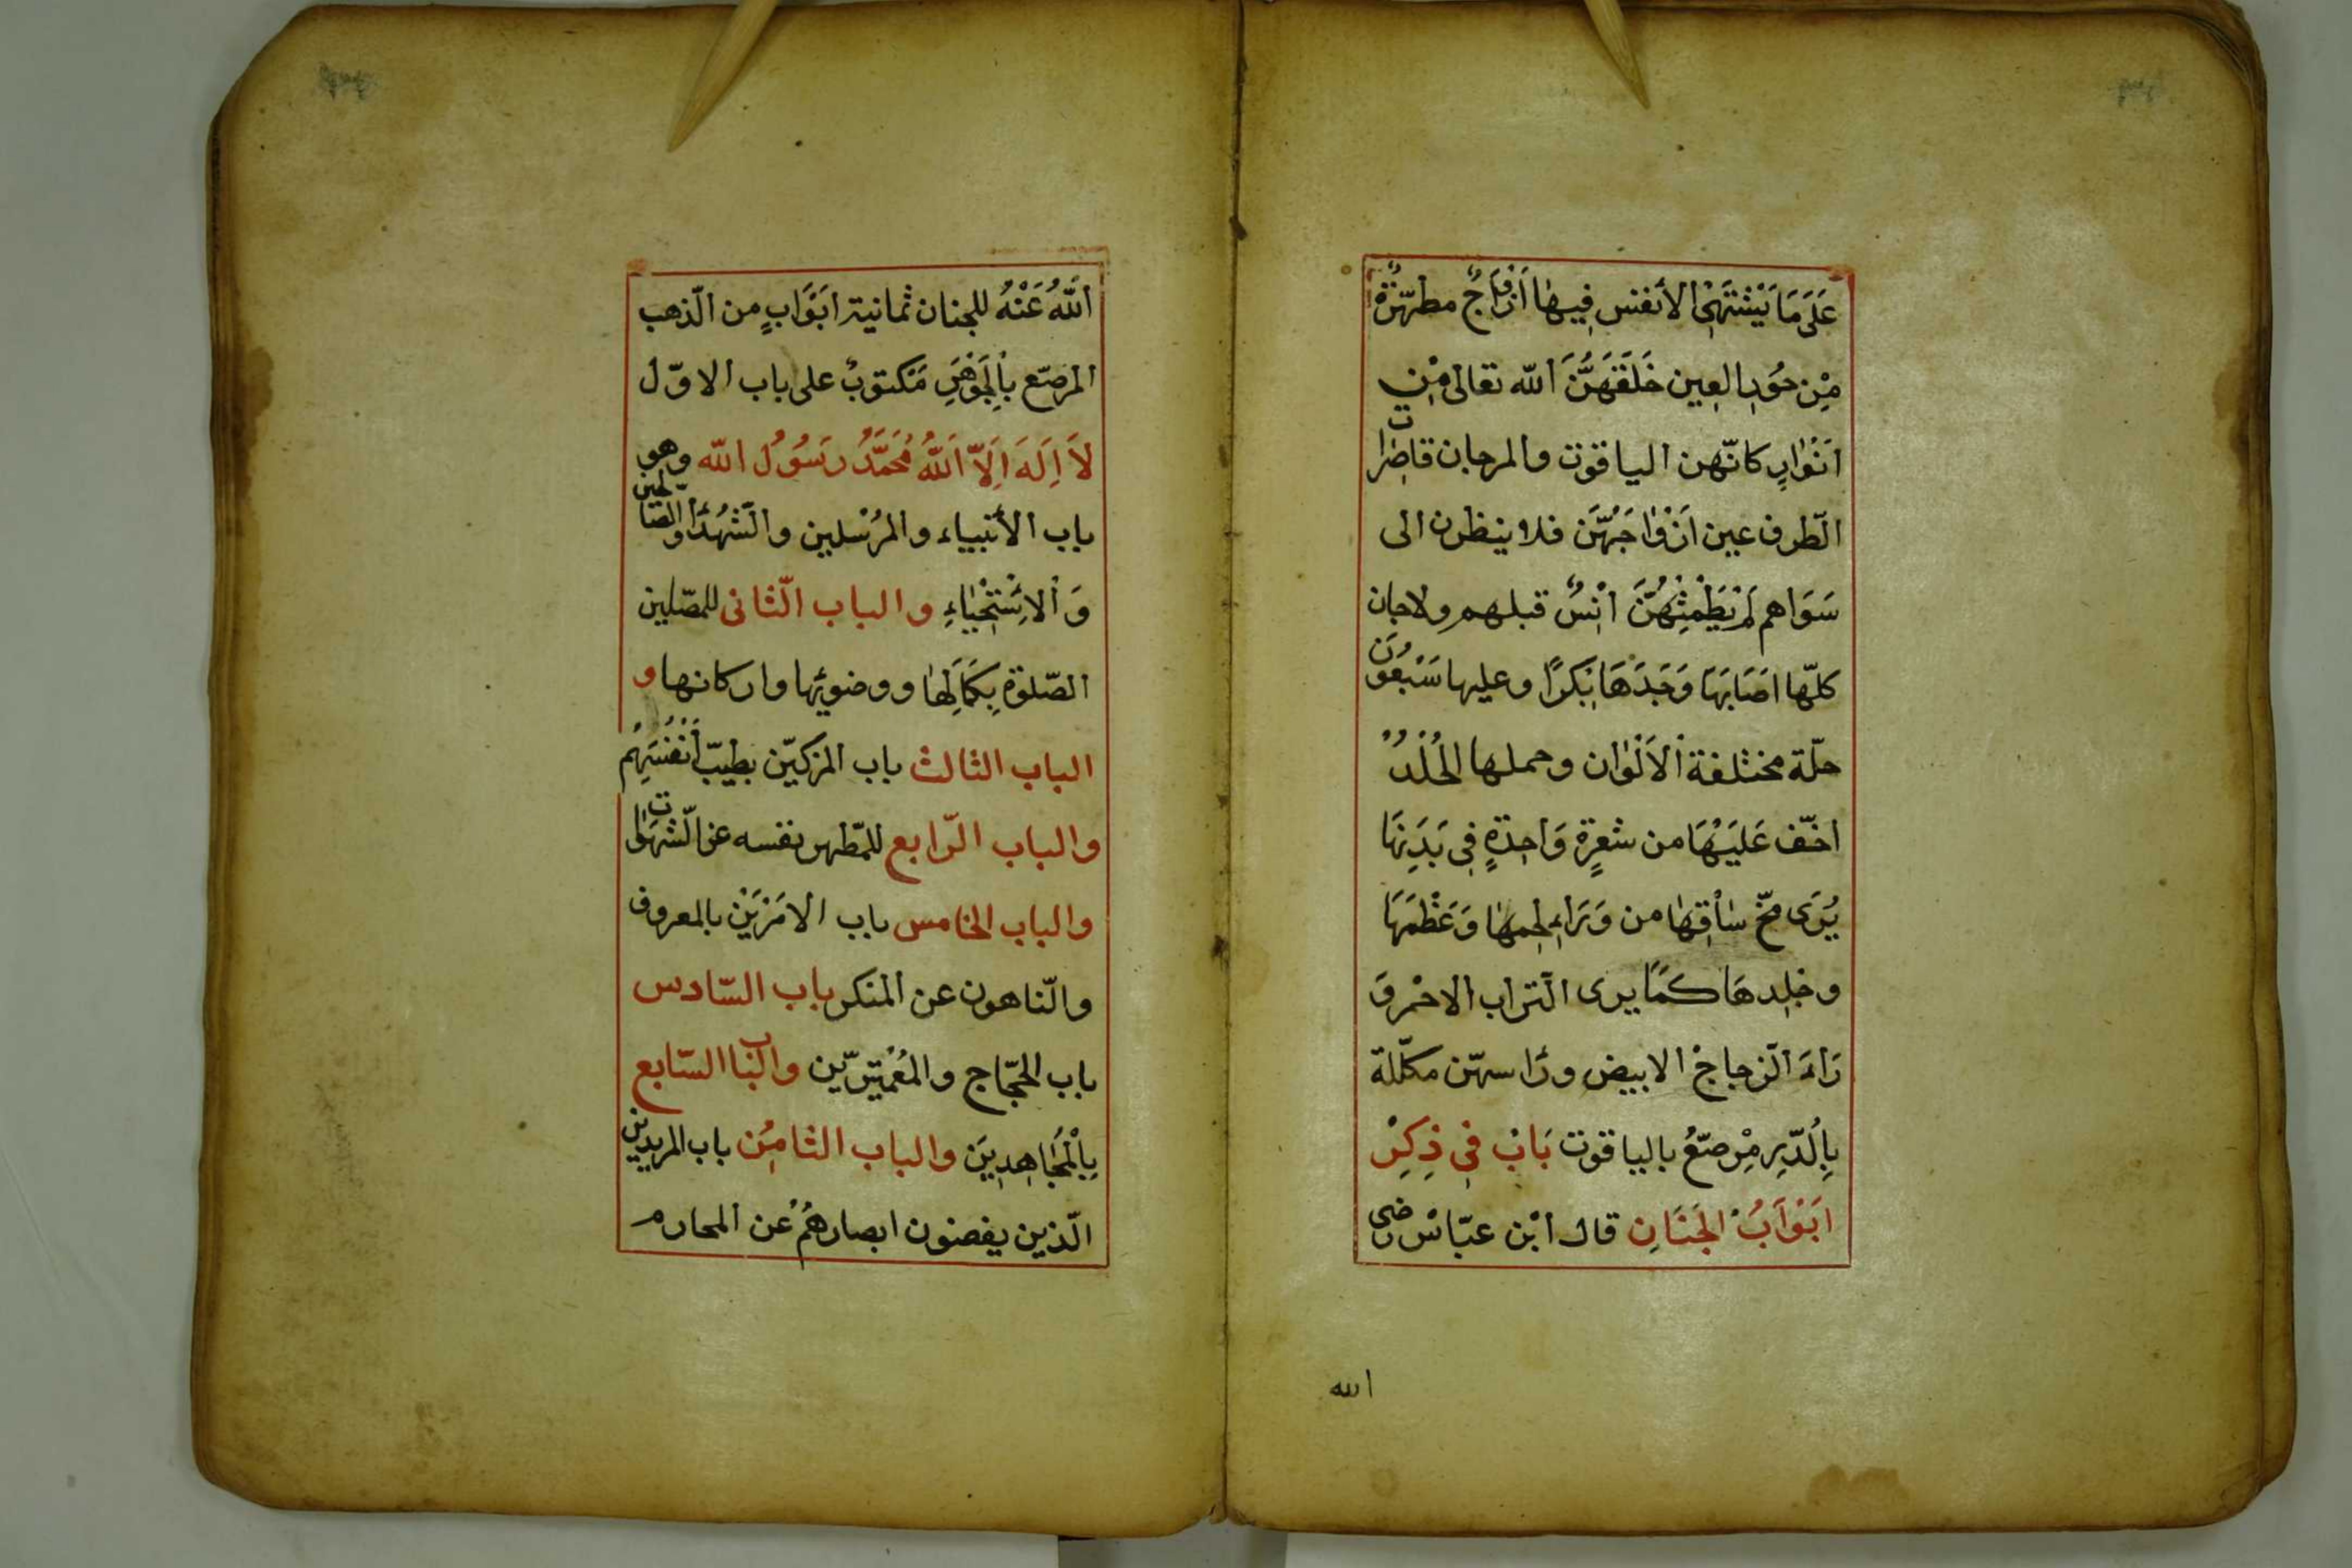 عَلَىَ مَا يَشْتَهِىْ الأنفس فِيهٰا اَزْوٰاجٌ مطهّرَةٌ
مِنْ حُوُرِ العِين خَلَقَهُنَّ اللّه تعالى مِنْ
اَنْوٰارٍ كانّهن الياقوت والمرجان قاصِرات
الطّرف عين اَزْوٰاجَهُنّ فلا ينظرن الى
سَوَاهم لم يَطْمِثْهُنَّ اِنْسٌ قبلهم ولاجان
كلّها اصَابَهَا وَجَدَهَا بَكرًا وعليها سَبْعُوُنَ
حلّة مختلفة الاَلْوٰان وحملها الحُلْلُ
اخّف عَلَيْهَا من شعرةٍ وَاحِدَةٍ فِى بَدَنِهَا
يُرَى مخّ سٰاقِهٰا من وَرَاءِ لحِمهٰا وَعَظْمَهَا
وجلِدهَا كَمَا يرى التراب الاحْمر وَ
رَاءَ الزجاجْ الابيض ورَاسهّن مكلّلة
بِاُلدّرِ مِرْصّعُ بالياقوت بَابْ فِى ذِكِرْ
اَبَوْاَبُ الجَنَانِ قال اْبْن عبّاسْ رضى
الله
اَللّهُ عَنْهُ للجنان ثمانية ابَوْاَبٍ من الّذهب
المرصّع بِاْلجَوْهَرِ مَكتوبٌ على باب الاوّل
لاَ اِلَهَ اِلاّ اَللّهُ مُحَمَّدُ رَسُوُلُ اللّه وهو
باب الأنبياء والمرُسلين والشّهُدَا والصّالحين
وَ اْلاسْتَحْيٰاءِ والباب الثّانى للمصّلين
الصّلوة بِكَمَالِهٰا ووضوئها واركانها و
الباب الثالث باب المزكيّن بطيبّ اَنْفُسَهِمُ
والباب الرّابع للمّطهر نفسه عن الشّهَوٰات
والباب الخامس باب الامَرْيَنْ بالمعروف
والنّاهون عن المنكر باب السّادس
باب الحجّاج والمُعْمَتِرّين والباب السّابع
بِاْلمجُاهِدِينَ والباب الثامِنُ باب المريدين
الّذين يغضون ابصارهُمْ عن المحارم